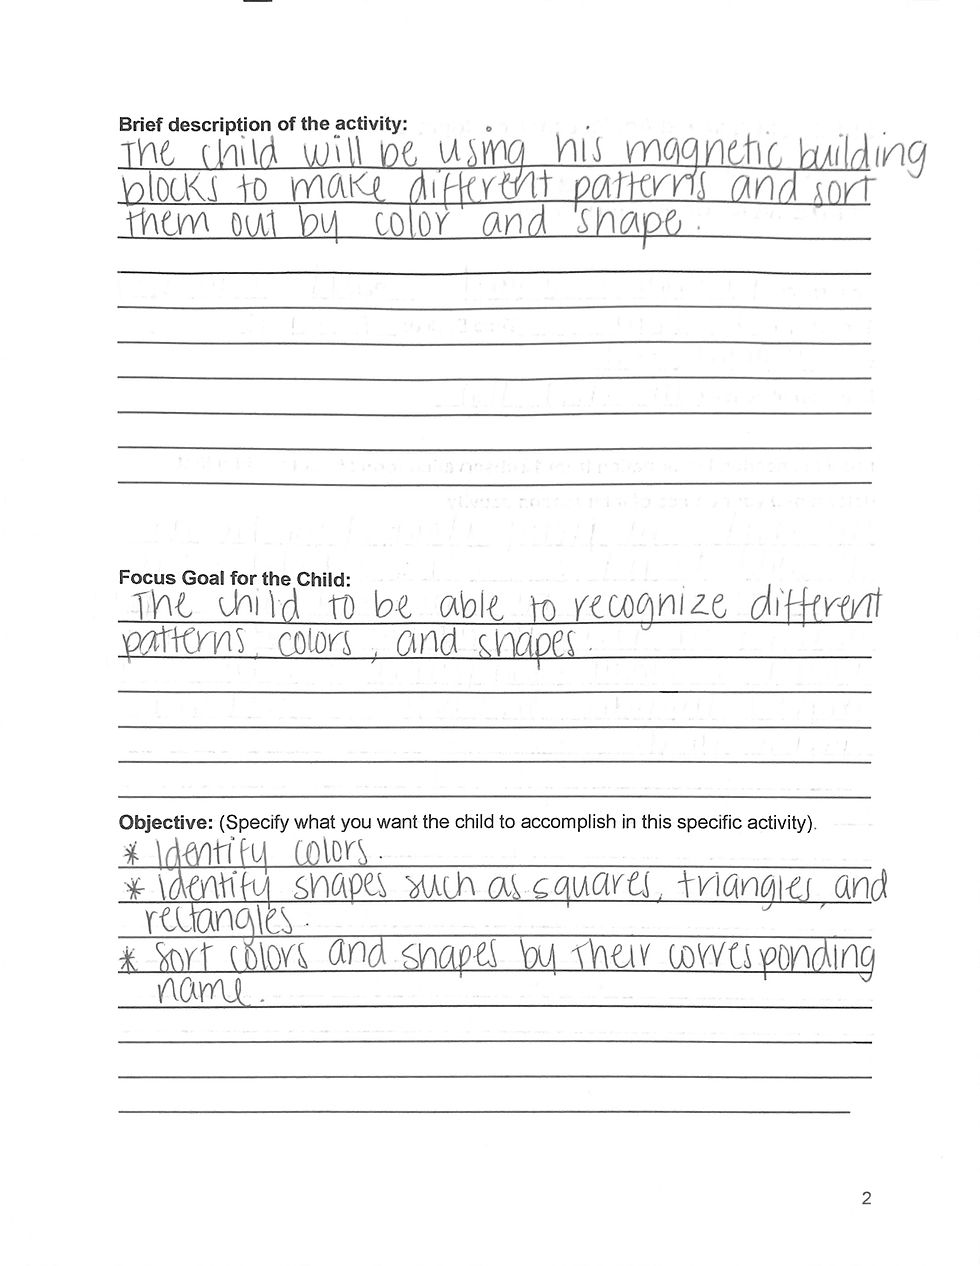 Brief description of the activity:
The child will be using his magnetic building
blocks to make different patterns and sort
them out by color and shape.
Focus Goal for the Child:
The child to be able to recognize different
patterns, colors, and shapes.
Objective: (Specify what you want the child to accomplish in this specific activity).
* Identify colors.
* identify shapes such as squares, triangles, and
rectangles.
* Sort colors and shapes by their corresponding
name.
2